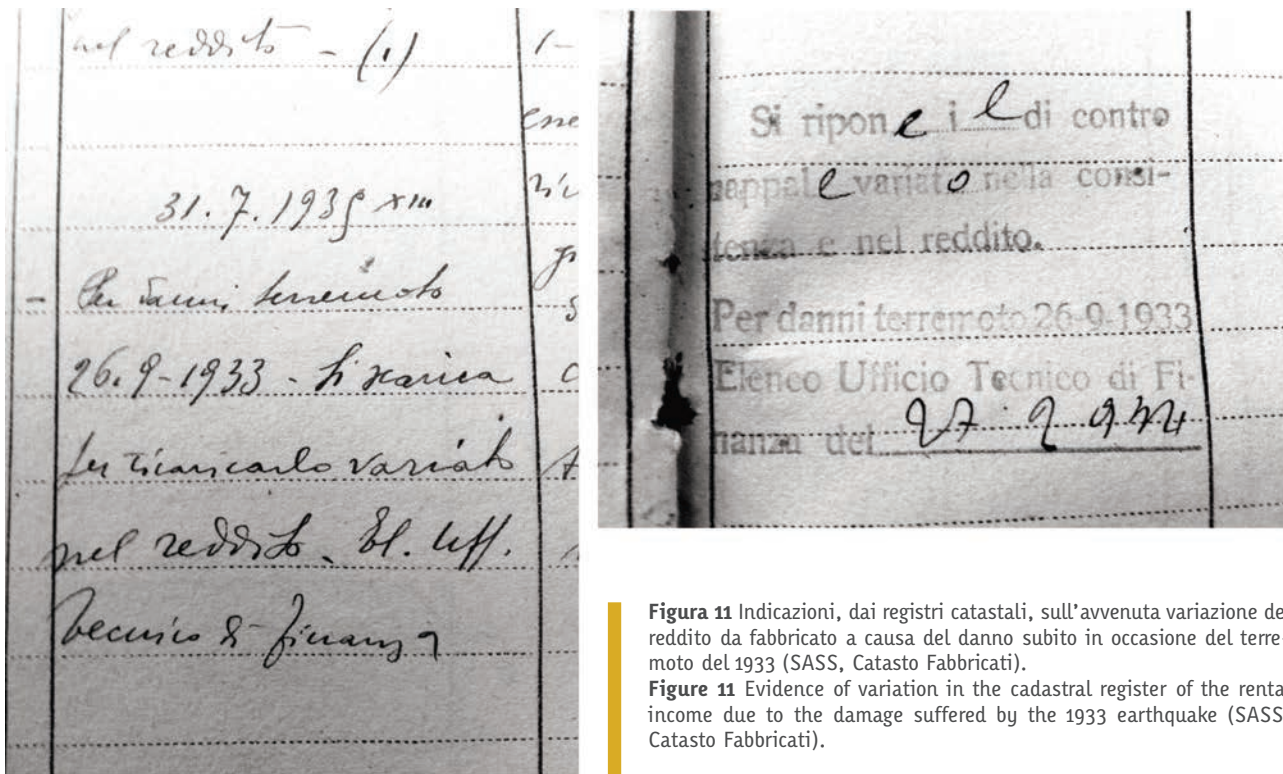 nel reddito - (1)
1-
31.7.1935 XIII
- Per danni terremoto
26.9-1933 - Si scarica
per ricaricarlo variato
nel reddito - El. Uff.
Tecnico di Finanza
Si ripone il di contro
mappale variato nella consi-
tenza e nel reddito.
Per danni terremoto 26-9-1933
Elenco Ufficio Tecnico di Fi-
nanza del 27 2 934
Figura 11 Indicazioni, dai registri catastali, sull'avvenuta variazione de
reddito da fabbricato a causa del danno subito in occasione del terre
moto del 1933 (SASS, Catasto Fabbricati).
Figure 11 Evidence of variation in the cadastral register of the renta
income due to the damage suffered by the 1933 earthquake (SASS
Catasto Fabbricati).